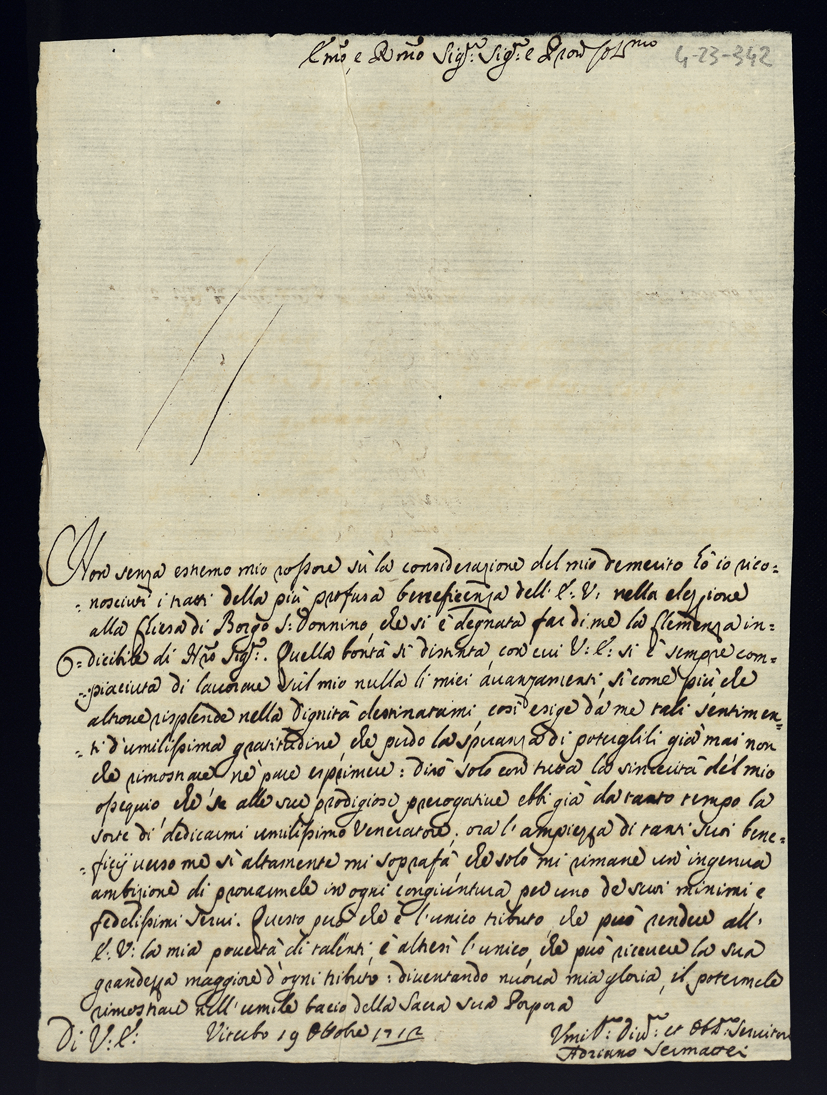 Em̃o, e Rm̃o Sig.r Sig.r e Pron Col.mo
4-23-342
Non senza estremo mio rossore sù la considerazione del mio demerito hò io rico=
=nosciuti i tratti della più profusa beneficenza dell' E: V: nella elezzione
alla Chiesa di Borgo S: Donnino, che si è degnata far di me la Clemenza in=
=dicibile di Nrõ Sig.re. Quella bontà sì distinta, con cui V: E: si è sempre com=
=piaciuta di lavorare sul mio nulla li miei avanzamenti, sì come più che
altrove risplende nella Dignità destinatami, così esige da me tali sentimen=
=ti d'umilissima gratitudine, che perdo la speranza di poterglili già mai non
che rimostrare, nè pure esprimere: Dirò solo con tutta la sincerità del mio
ossequio che se alle sue prodigiose prerogative ebbi già da tanto tempo la
sorte di dedicarmi umilissimo Veneratore, ora l'ampiezza di tanti suoi bene=
=ficij verso me sì altamente mi soprafà, che solo mi rimane un'ingenua
ambizione di provarmele in ogni congiuntura per uno de suoi minimi e
fedelissimi Servi. Questo però che è l'unico tributo, che può rendere all'
E: V: la mia povertà di talenti, è altresì l'unico, che può ricevere la sua
grandezza maggiore d'ogni tributo: diventando nuova mia gloria, il potermele
rimostrare nell'umile bacio della Sacra sua Porpora
Di V: E: Viterbo 19 Ottobre 1713
Umil.mo Div.mo et Obb.mo Servitore
Adriano Sermattei